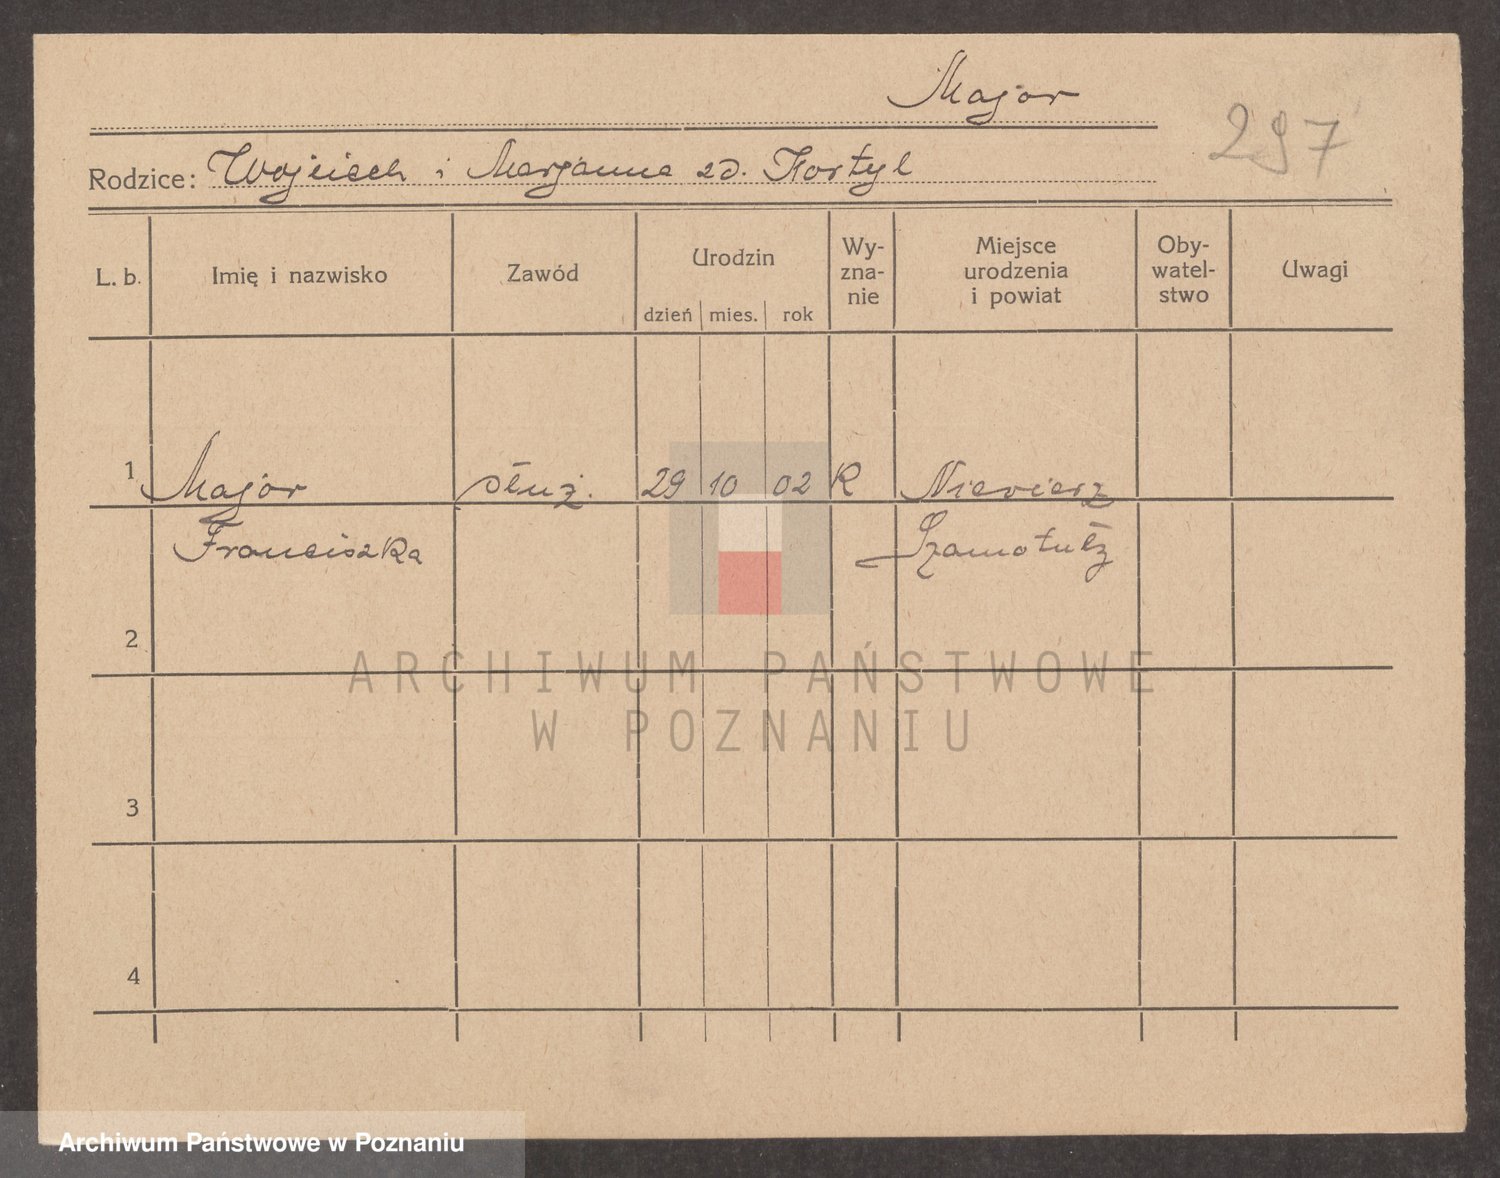 Major
297
Rodzice: Wojciech i Marjanna zd. Kortyl
L. b. Imię i nazwisko Zawód Urodzin Wy-zna-nie Miejsce urodzenia i powiat Oby-watel-stwo Uwagi
dzień mies. rok
1 Major służ. 29 10 02 R Niewierz
Franciszka Szamotuły
2
ARCHIWUM PAŃSTWOWE
W POZNANIU
3
4
Archiwum Państwowe w Poznaniu